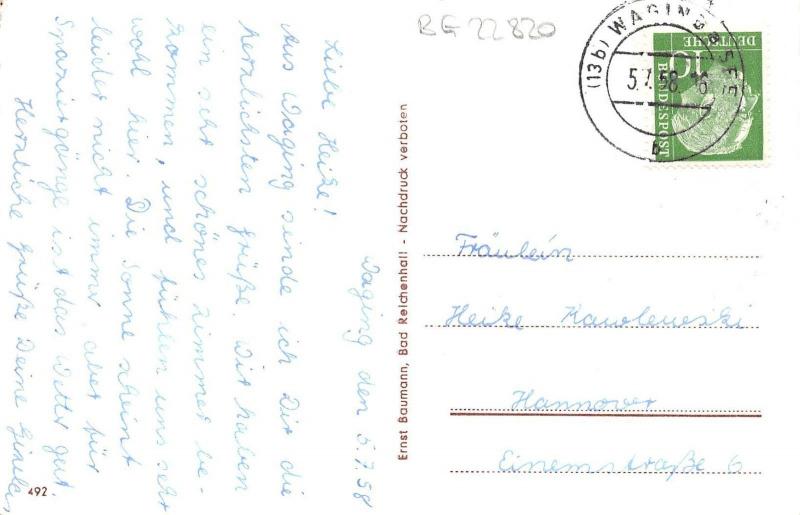 Waging den 5.7.58
Liebe Heike!
Aus Waging sende ich Dir die
herzlichsten Grüße. Wir haben
ein sehr schönes Zimmer be-
kommen, und fühlen uns sehr
wohl hier. Die Sonne scheint
leider nicht immer, aber für
Spaziergänge ist das Wetter gut.
Herzliche Grüße Deine Gisela
492
Ernst Baumann, Bad Reichenhall - Nachdruck verboten
BE 22820
(13b) WAGING
5.7.58-16
b
DEUTSCHE
BUNDESPOST
10
Fräulein
Heike Kawlewski
Hannover
Einemstraße 6